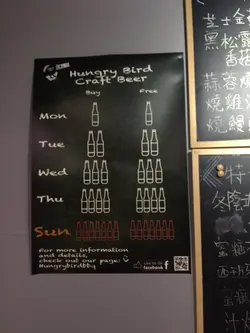 Hungry Bird
Craft Beer
Buy Free
Mon
Tue
Wed
Thu
Sun
For more information
and details,
check out our page:
Hungrybirdbbq
facebook
芝士
黑松露
香菇
蒜蓉
燒雞
燒鰻
特
冬陰